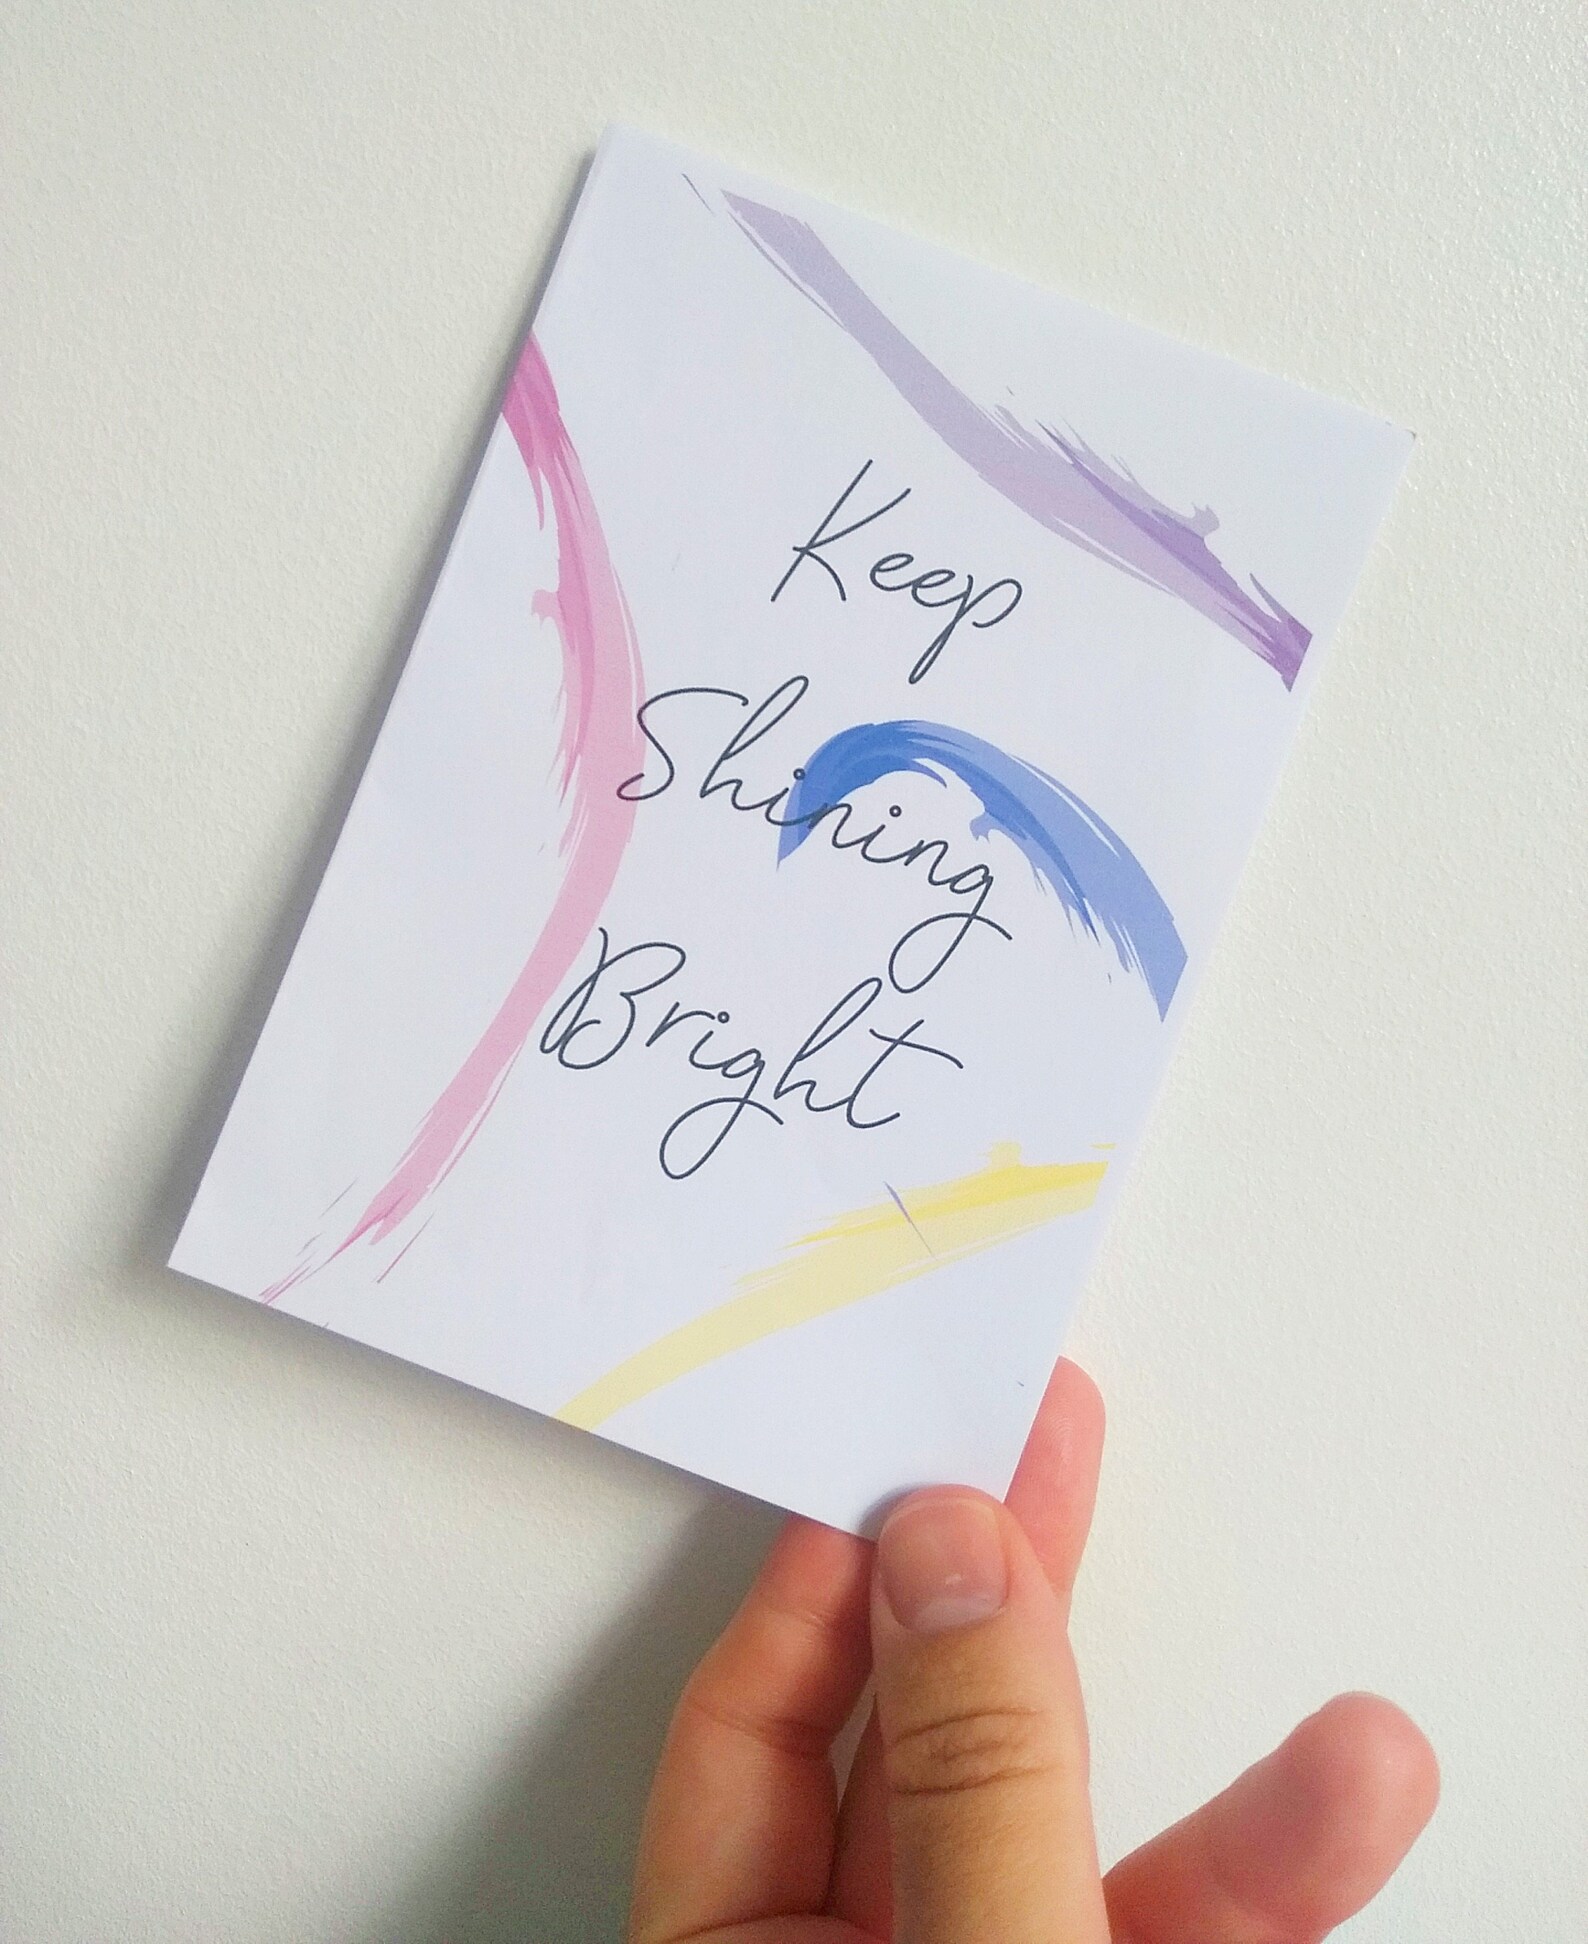 Keep
Shining
Bright